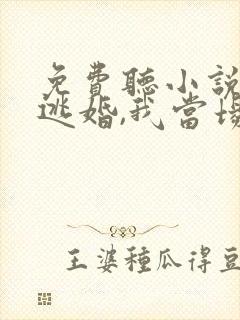 免費聽小說
逃婚,我當場
王婆種瓜得豆